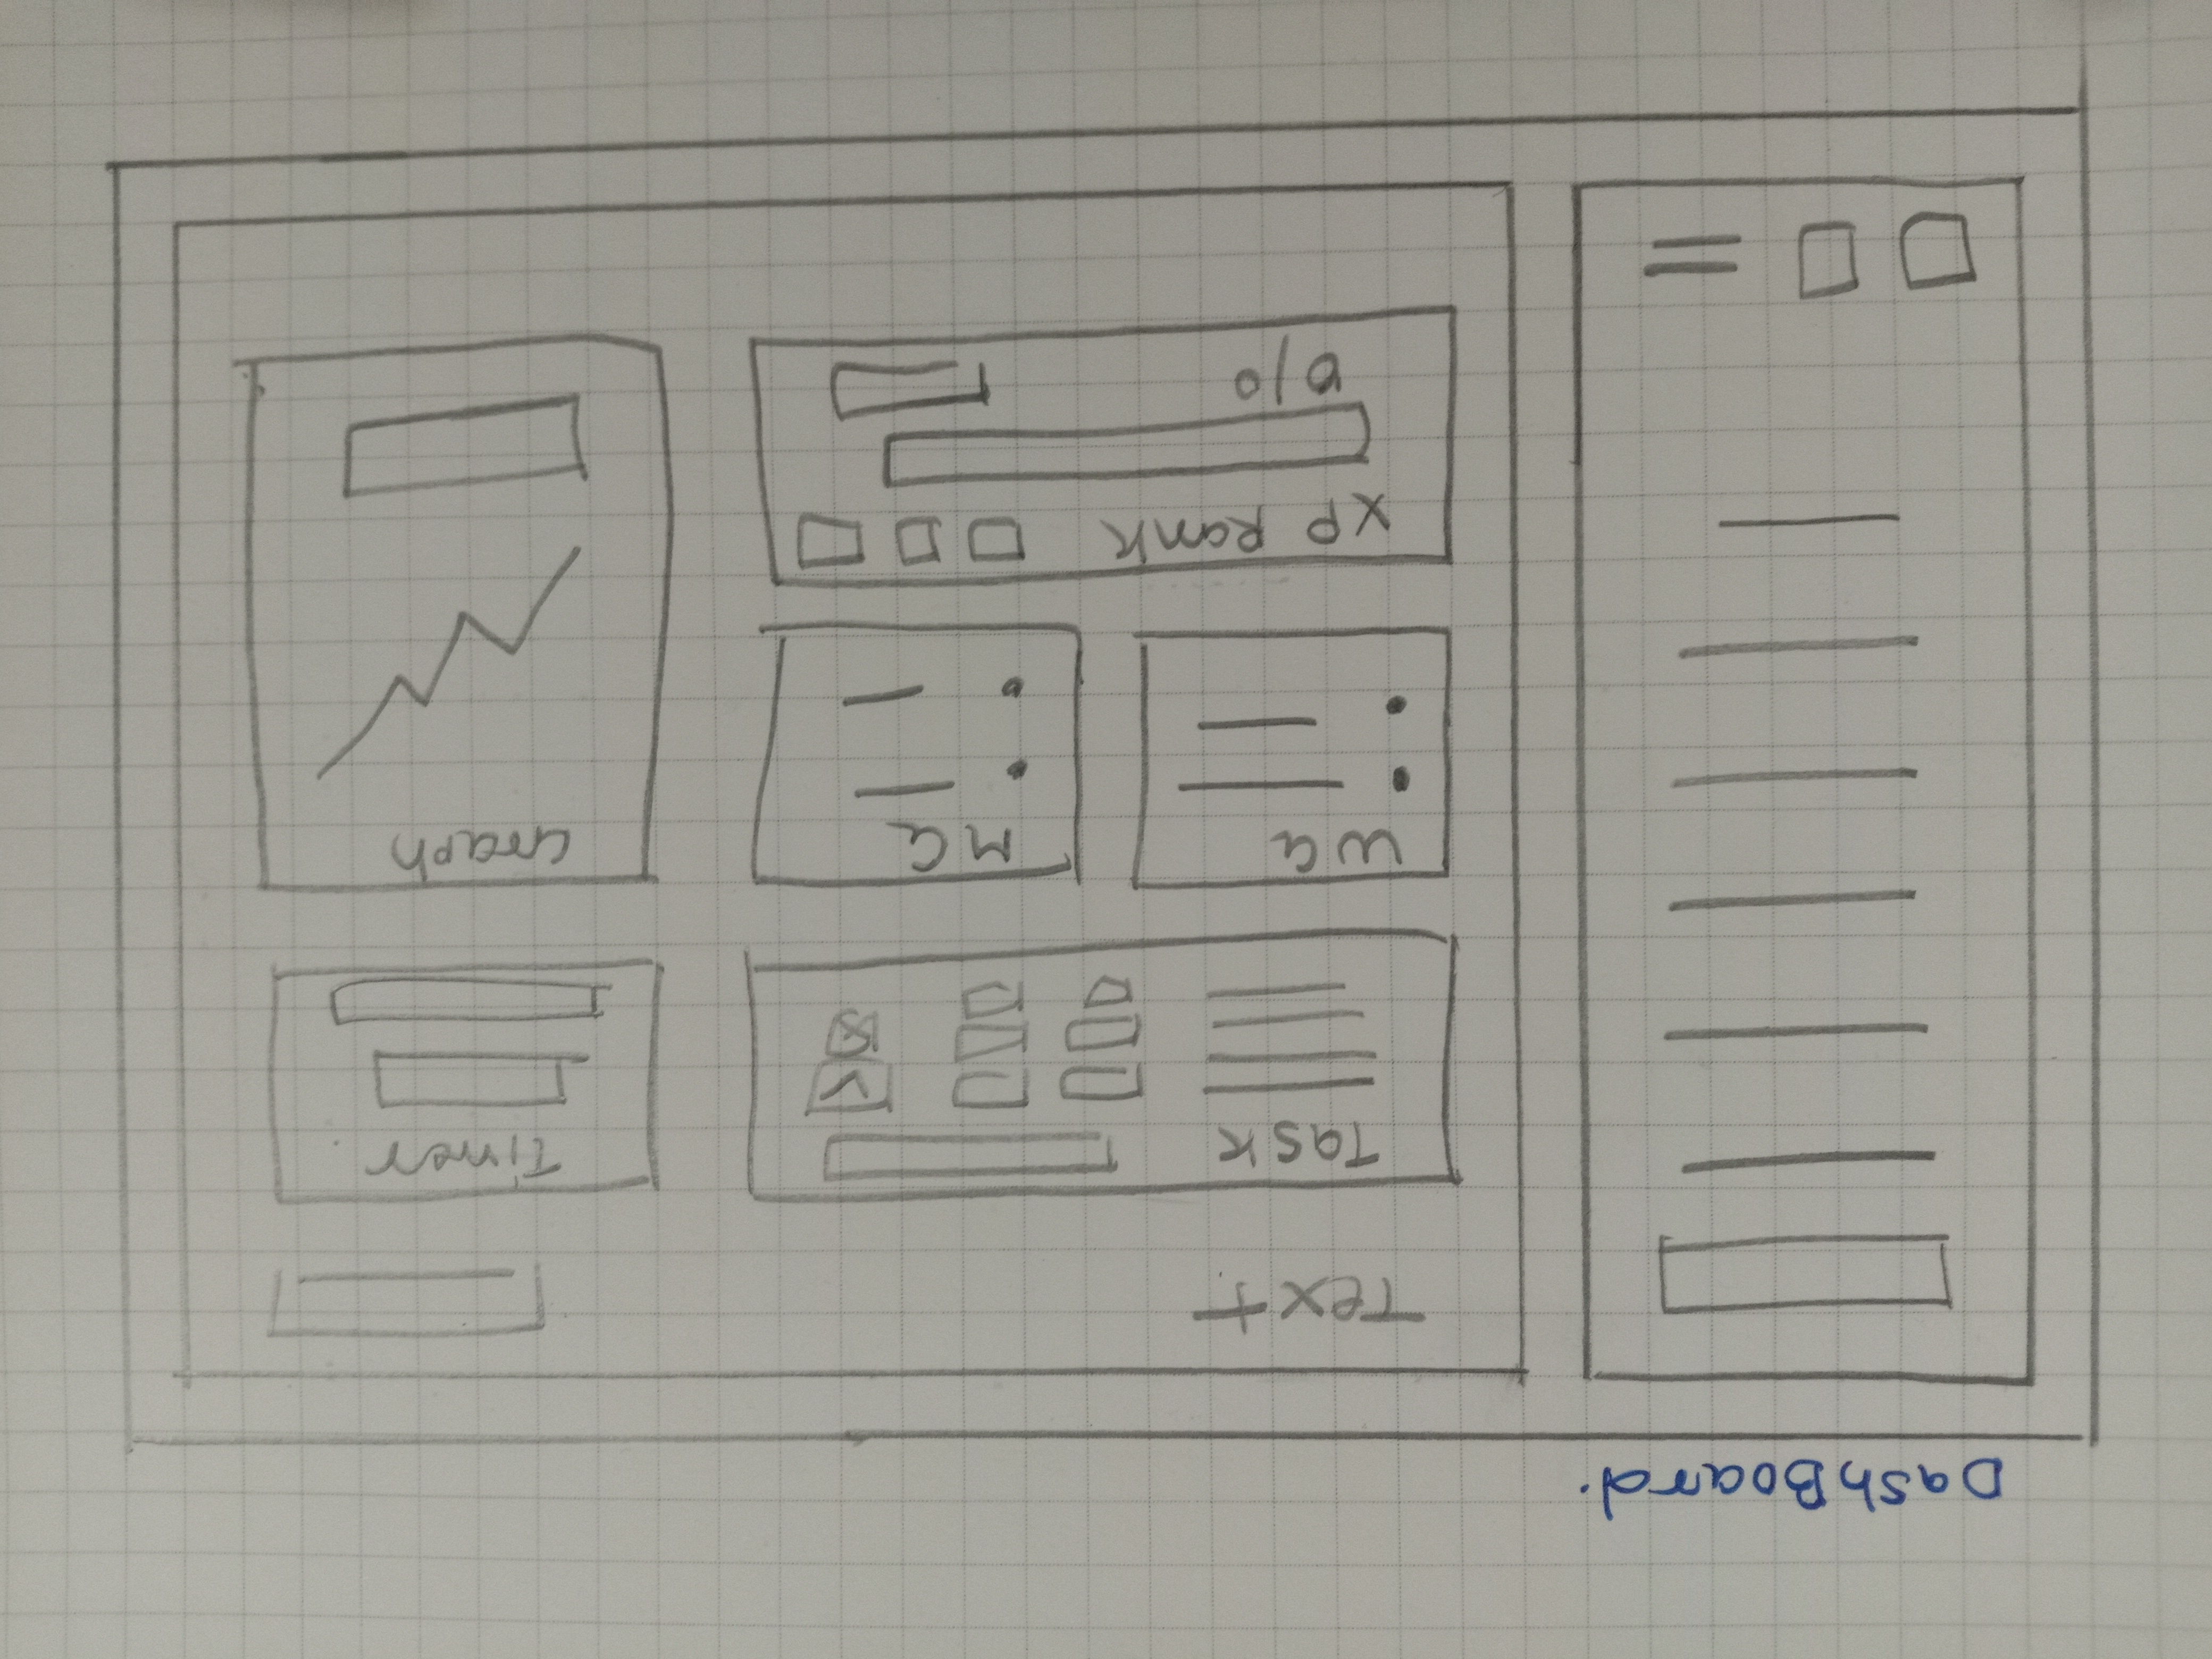 DashBoard.
Text.
Task
Timer.
WG
MG
Graph
XP Rank
0/0